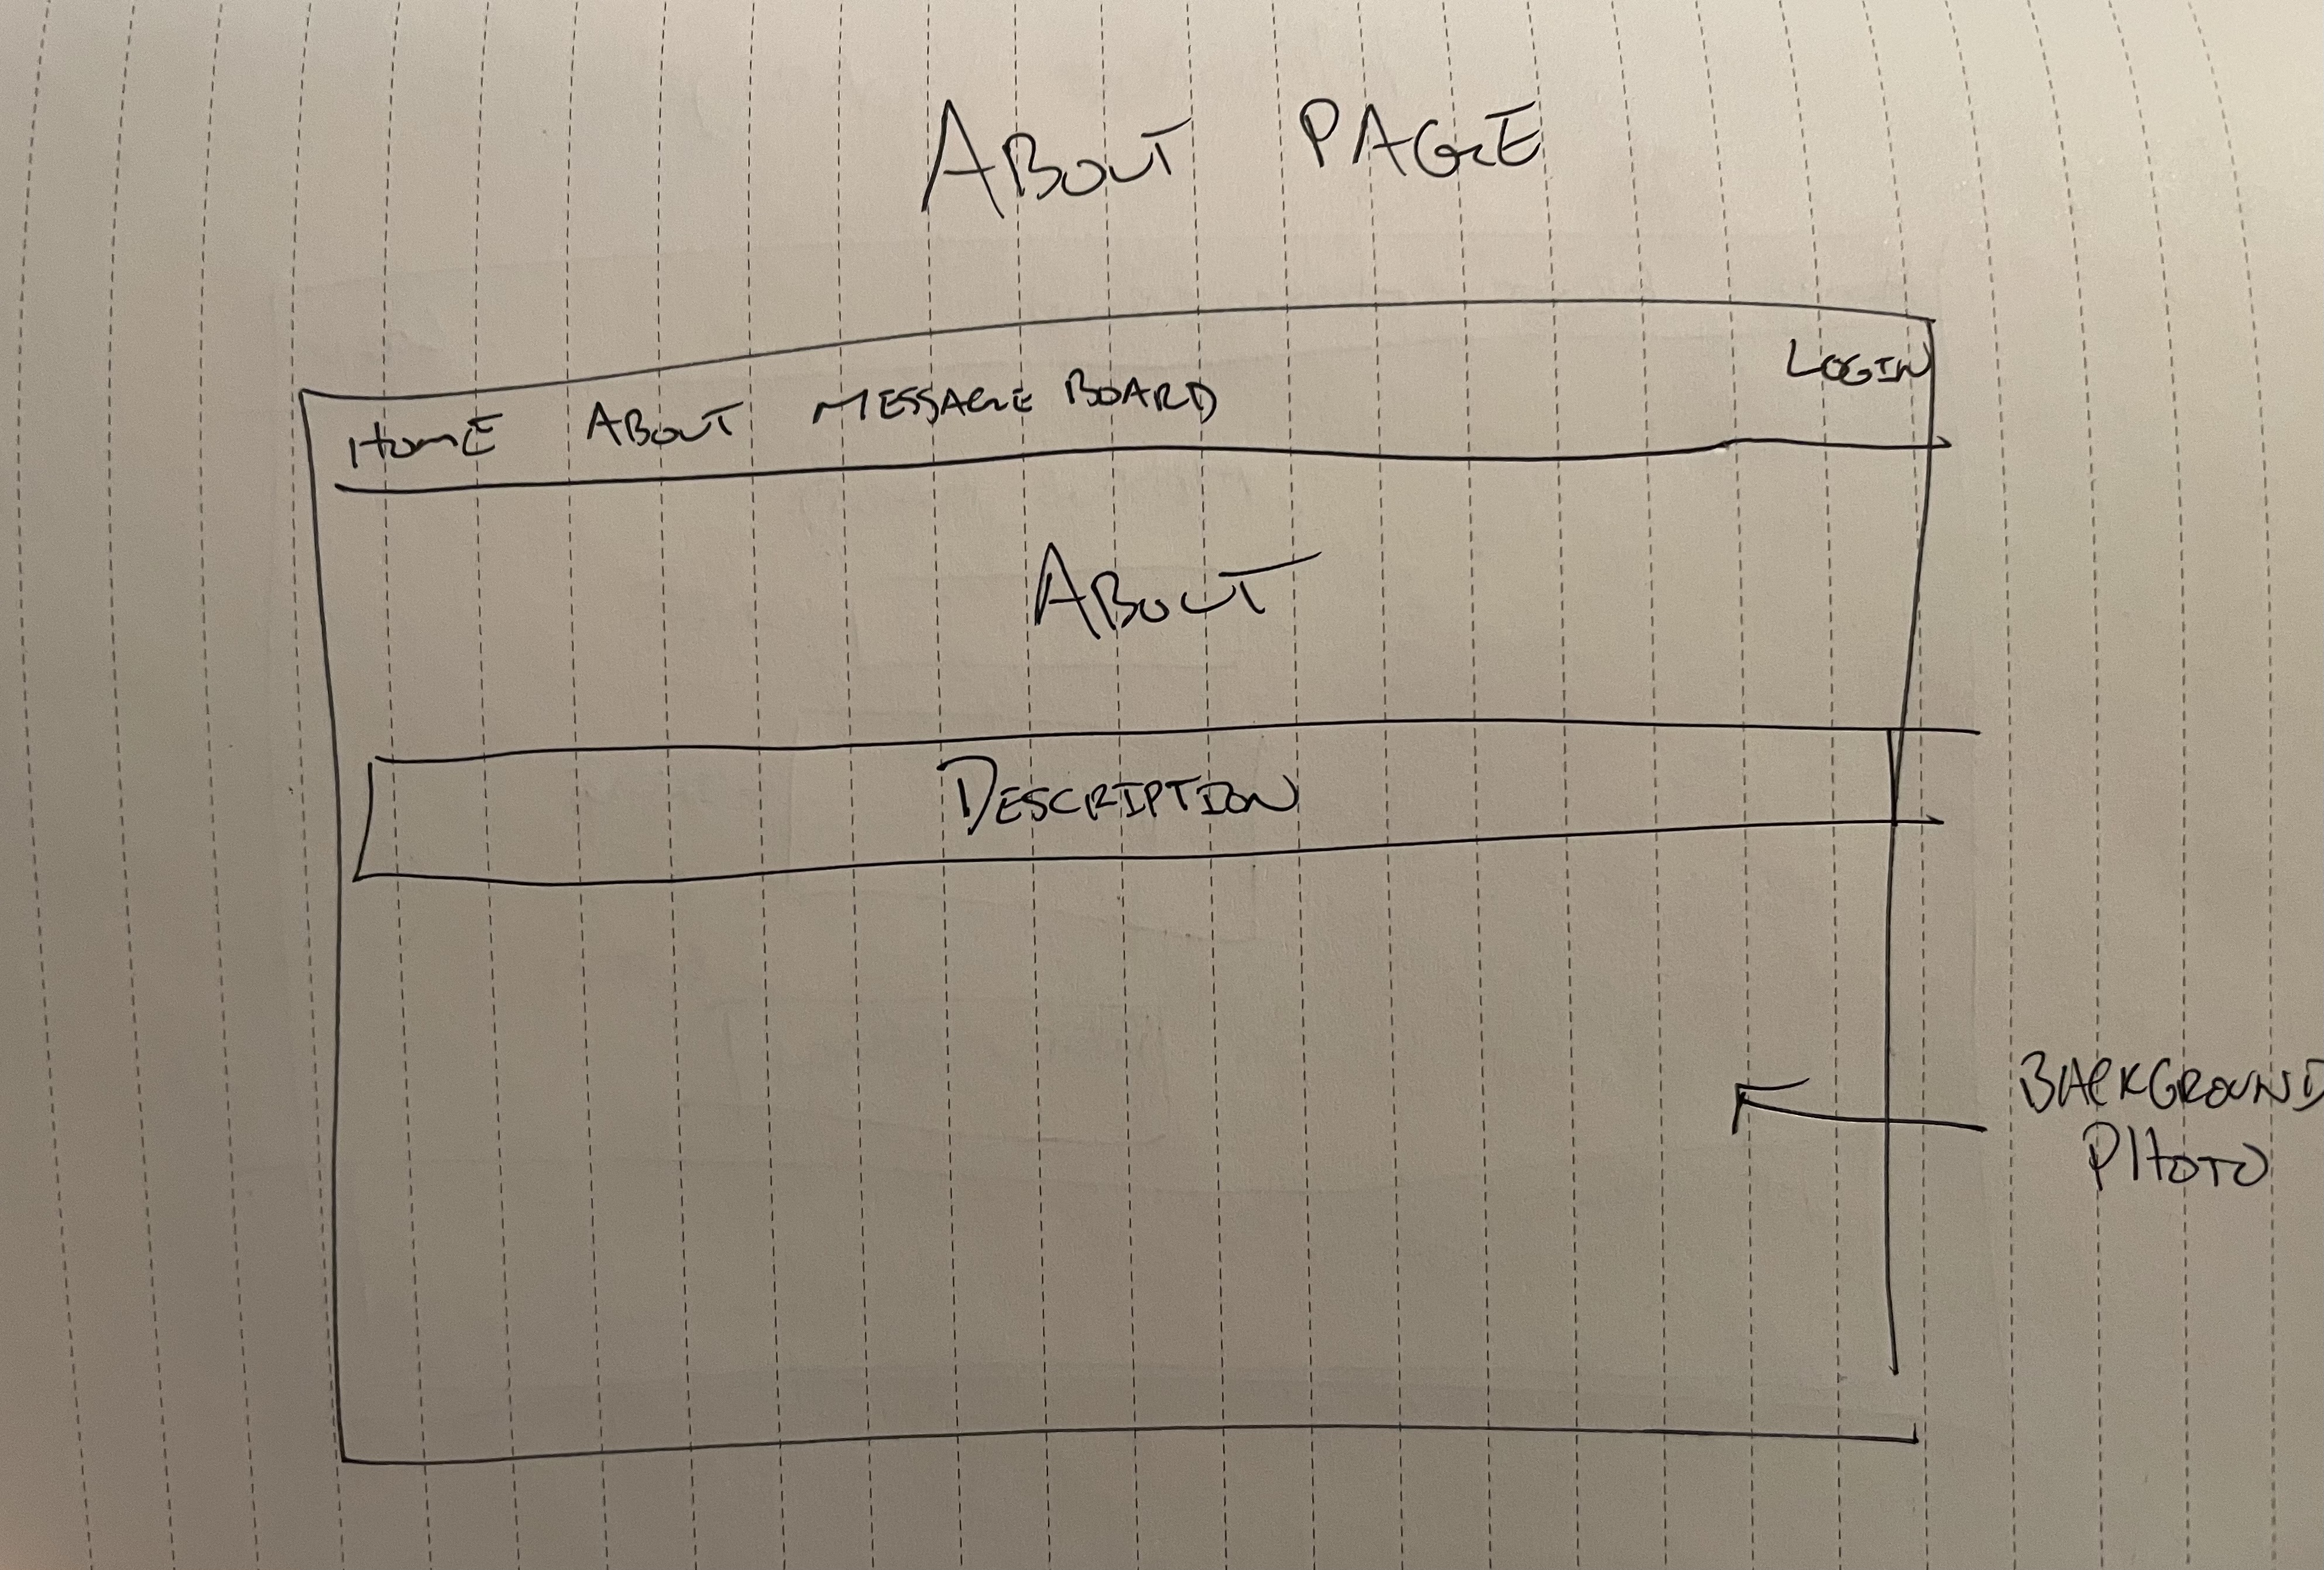 ABOUT PAGE
HOME ABOUT MESSAGE BOARD LOGIN
ABOUT
DESCRIPTION
BACKGROUND
PHOTO